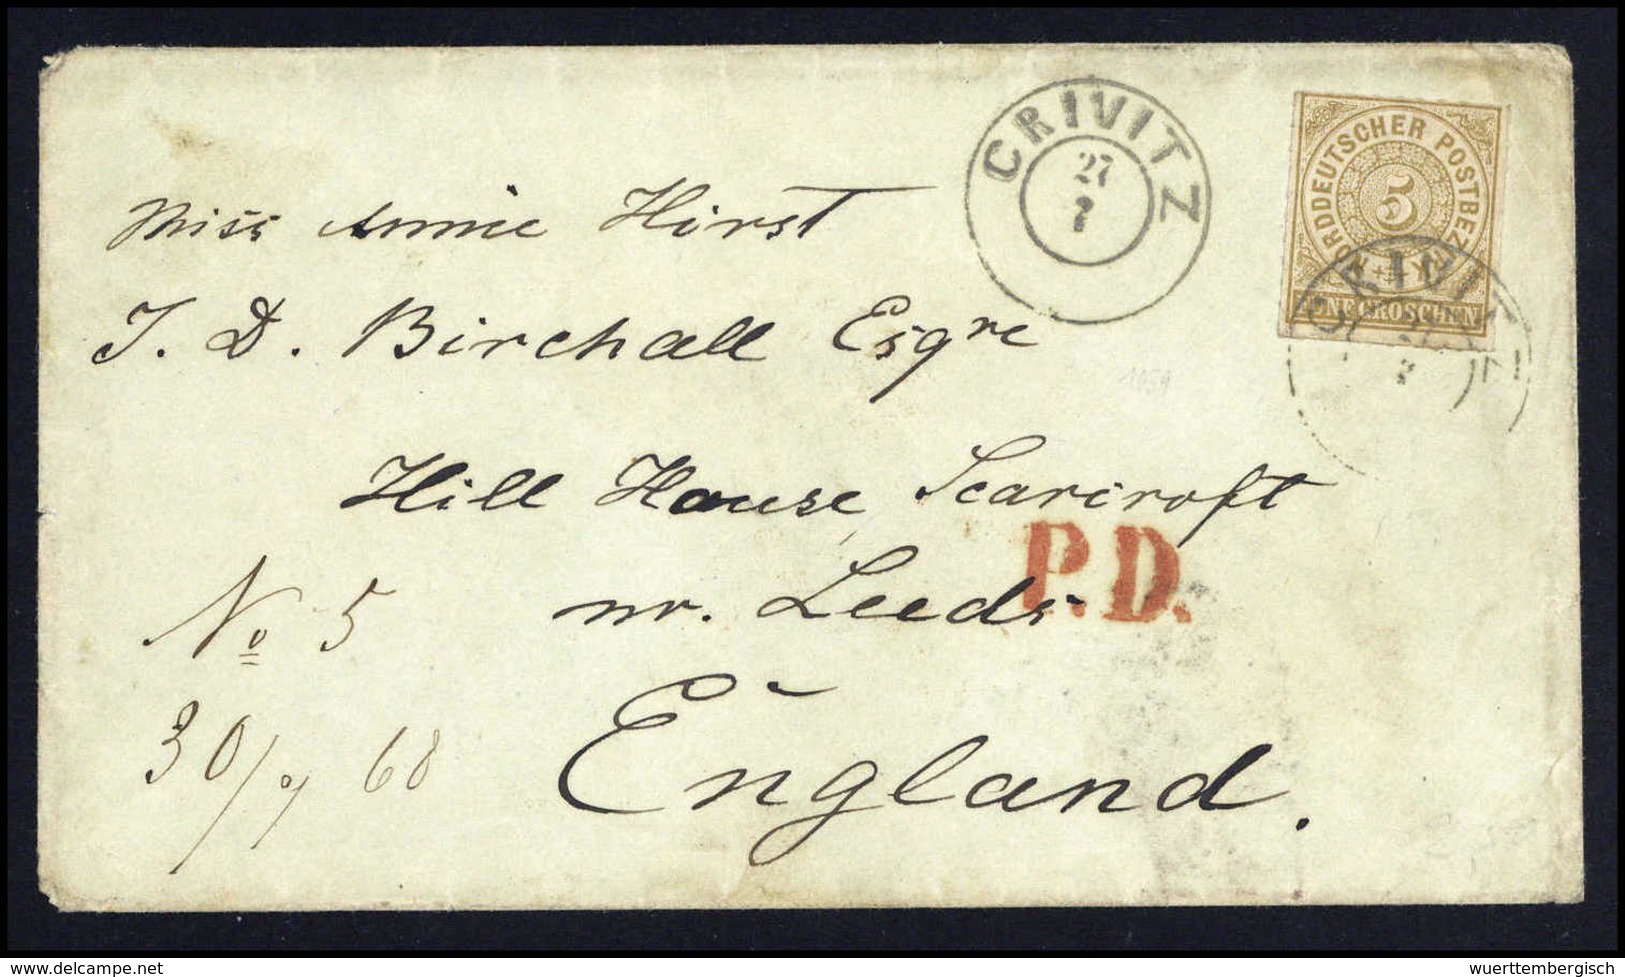 CRIVITZ
27
7
NORDDEUTSCHER POSTBEZIRK
5
FÜNF GROSCHEN
CRIVITZ
Miss Annie Hirst
J. D. Birchall Esqre
Hill House Scarcroft
P.D.
nr. Leeds
No 5
England.
30/7 68
www.delcampe.net
wuerttembergisch